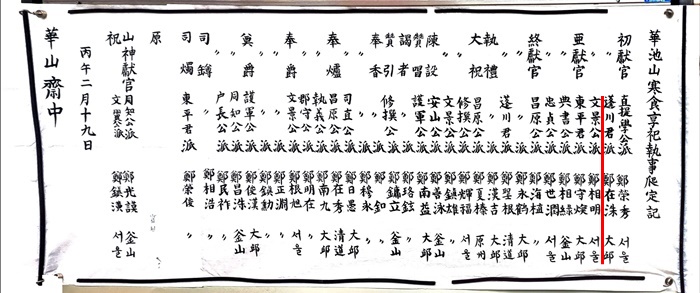 華池山寒食享祀執事爬定記
初獻官 直提學公派 鄭榮秀 서울
〃 蓬川君派 鄭在洙 大邱
〃 文景公派 鄭相明 서울
亞獻官 東平君派 鄭守煥 大邱
〃 典書公派 鄭相 釜山
〃 忠貞公派 鄭 潤 서울
終獻官 昌原公派 鄭海植 大邱
〃 〃 鄭永鶴 〃
〃 蓬川君派 鄭聖根 清道
執禮 〃 鄭漢吉 大邱
大祝 昌原公派 鄭夏榛 原州
〃 修撰公派 鄭輝福 〃
〃 文景公派 鄭鎮雄 서울
陳設 安山公派 鄭善泳 釜山
〃 護軍公派 鄭南益 大邱
謁者 〃 鄭珞鉉 〃
贊引 修撰公派 鄭鏞立 釜山
贊唱 〃 鄭 釦 〃
奉香 〃 鄭穆永 〃
〃 司直公派 鄭日愚 大邱
奉爐 昌原公派 鄭在秀 清道
〃 執義公派 鄭南九 大邱
〃 郡守公派 鄭明在 〃
奉爵 文景公派 鄭根旭 서울
〃 〃 鄭正淵 〃
〃 〃 鄭鎮勳 〃
奠爵 護軍公派 鄭俊漢 大邱
〃 同知公派 鄭昌洙 釜山
〃 戶長公派 鄭民祚 〃
司罇 〃 鄭相浩 〃
司燭 東平君派 鄭榮俊 〃
原
山神獻官 同知公派 鄭光謨 釜山
祝 文景公派 鄭鎮漢 서울
丙午二月十九日
華山齋中